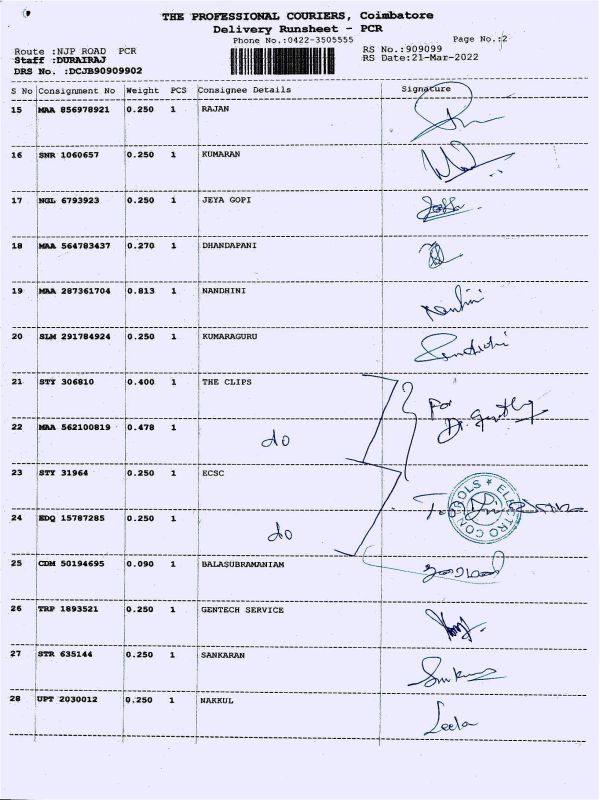 THE PROFESSIONAL COURIERS, Coimbatore
Delivery Runsheet - PCR
Phone No.:0422-3505555
Page No.:2
Route :NJP ROAD PCR
RS No.:909099
Staff :DURAIRAJ
RS Date:21-Mar-2022
DRS No. :DCJB90909902
S No Consignment No Weight PCS Consignee Details Signature
15 MAA 856978921 0.250 1 RAJAN
16 SNR 1060657 0.250 1 KUMARAN
17 NGL 6793923 0.250 1 JEYA GOPI
18 MAA 564783437 0.270 1 DHANDAPANI
19 MAA 287361704 0.813 1 NANDHINI Nandhini
20 SLM 291784924 0.250 1 KUMARAGURU
21 STY 306810 0.400 1 THE CLIPS
For
22 MAA 562100819 0.478 1 do
23 STY 31964 0.250 1 ECSC
ELECTRO CONTROLS
24 EDQ 15787285 0.250 1 do
25 CDM 50194695 0.090 1 BALASUBRAMANIAM
26 TRP 1893521 0.250 1 GENTECH SERVICE
27 STR 635144 0.250 1 SANKARAN
28 UPT 2030012 0.250 1 NAKKUL Leela